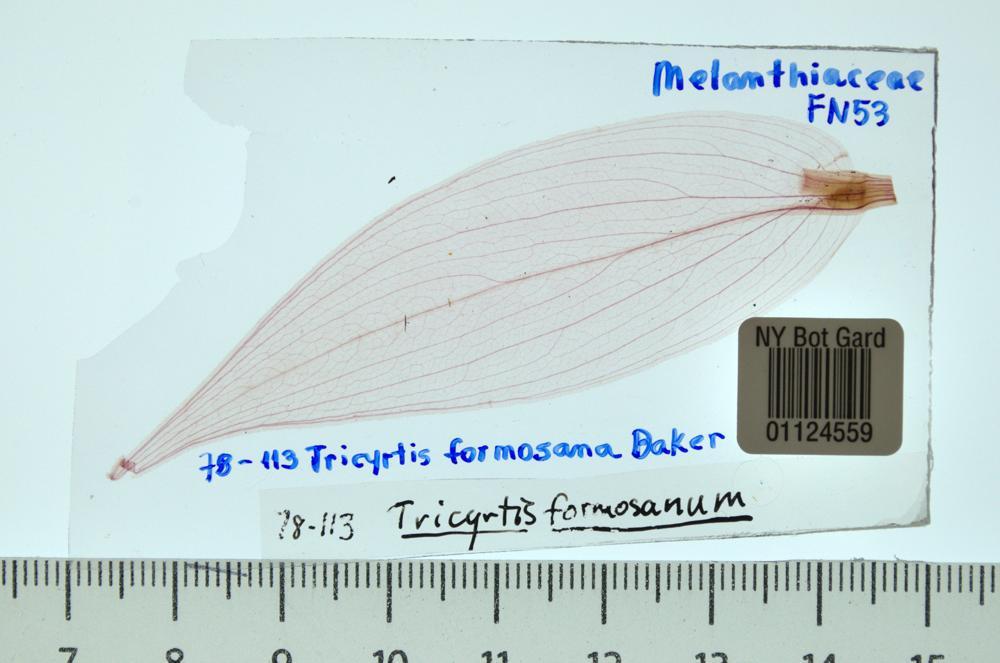 Melanthiaceae
FN53
NY Bot Gard
01124559
78-113 Tricyrtis formosana Baker
78-113 Tricyrtis formosanum
7 8 9 10 11 12 13 14 15